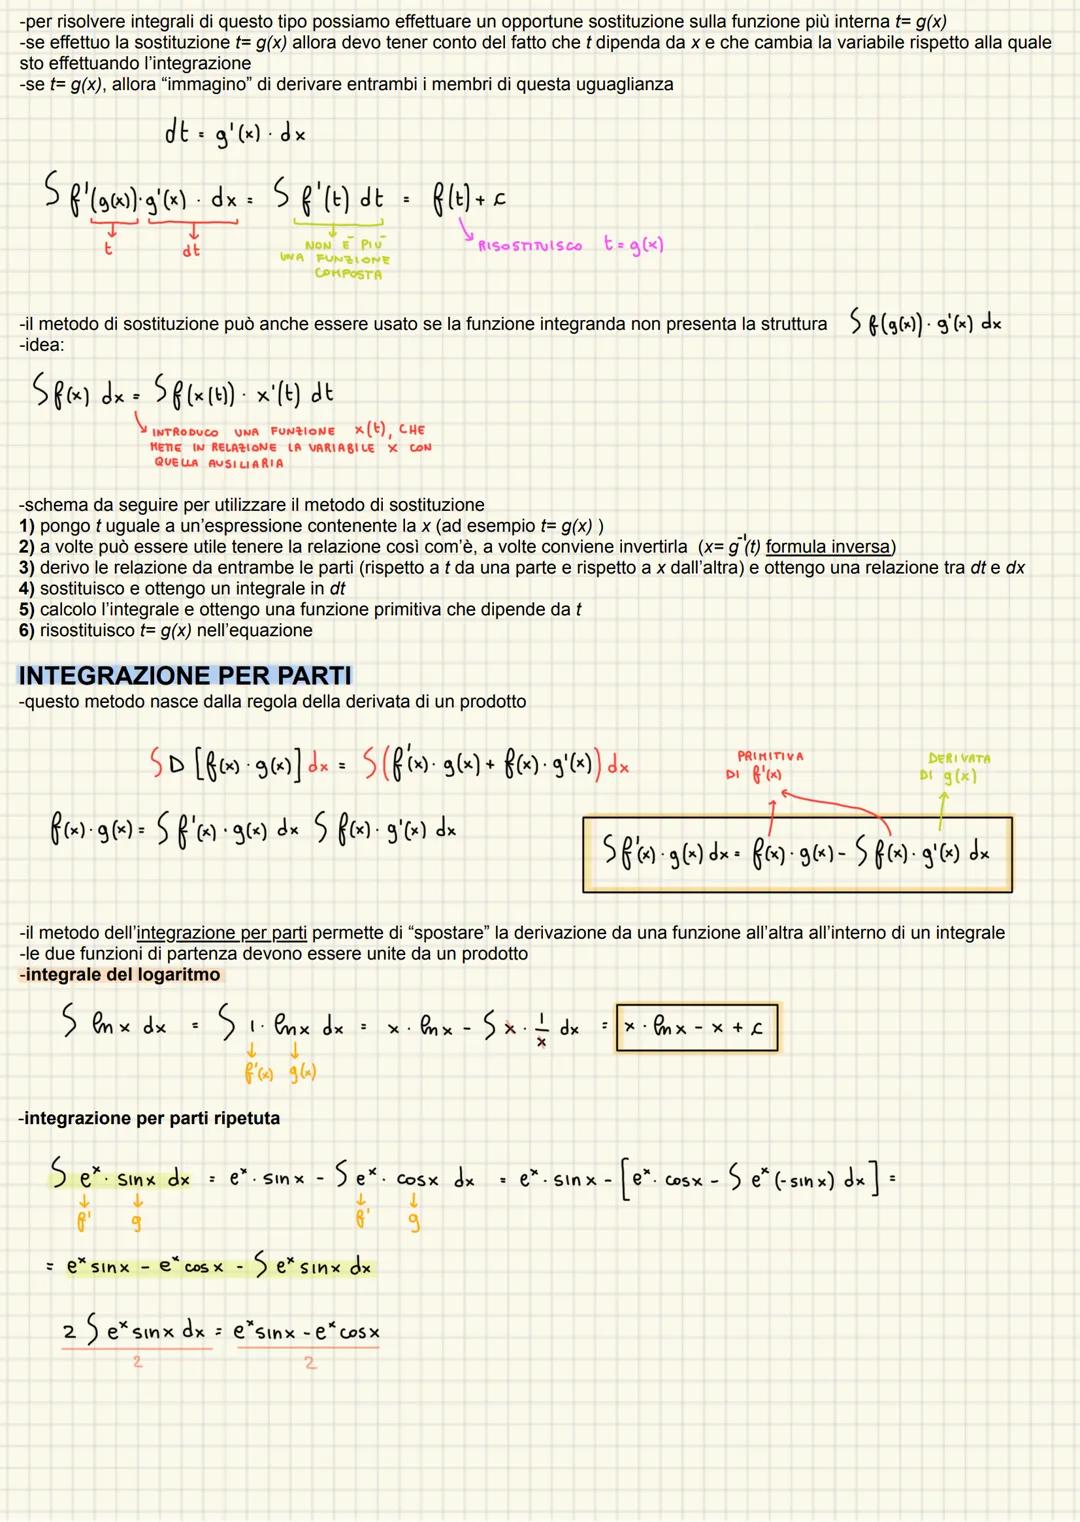 -per risolvere integrali di questo tipo possiamo effettuare un opportune sostituzione sulla funzione più interna t= g(x)
-se effettuo la sostituzione t= g(x) allora devo tener conto del fatto che t dipenda da x e che cambia la variabile rispetto alla quale
sto effettuando l'integrazione
-se t= g(x), allora "immagino" di derivare entrambi i membri di questa uguaglianza
dt = g'(x) · dx
∫ f'(g(x)) · g'(x) · dx = ∫ f'(t) dt = f(t) + c
t dt NON È PIÙ UNA FUNZIONE COMPOSTA RISOSTITUISCO t = g(x)
-il metodo di sostituzione può anche essere usato se la funzione integranda non presenta la struttura ∫ f(g(x)) · g'(x) dx
-idea:
∫ f(x) dx = ∫ f(x(t)) · x'(t) dt
INTRODUCO UNA FUNZIONE x(t), CHE
METTE IN RELAZIONE LA VARIABILE X CON
QUELLA AUSILIARIA
-schema da seguire per utilizzare il metodo di sostituzione
1) pongo t uguale a un'espressione contenente la x (ad esempio t= g(x) )
2) a volte può essere utile tenere la relazione così com'è, a volte conviene invertirla (x= g⁻¹(t) formula inversa)
3) derivo le relazione da entrambe le parti (rispetto a t da una parte e rispetto a x dall'altra) e ottengo una relazione tra dt e dx
4) sostituisco e ottengo un integrale in dt
5) calcolo l'integrale e ottengo una funzione primitiva che dipende da t
6) risostituisco t= g(x) nell'equazione
INTEGRAZIONE PER PARTI
-questo metodo nasce dalla regola della derivata di un prodotto
∫ D [f(x) · g(x)] dx = ∫ (f'(x) · g(x) + f(x) · g'(x)) dx
PRIMITIVA DI f'(x)
DERIVATA DI g(x)
f(x) · g(x) = ∫ f'(x) · g(x) dx ∫ f(x) · g'(x) dx
∫ f'(x) · g(x) dx = f(x) · g(x) - ∫ f(x) · g'(x) dx
-il metodo dell'integrazione per parti permette di "spostare" la derivazione da una funzione all'altra all'interno di un integrale
-le due funzioni di partenza devono essere unite da un prodotto
-integrale del logaritmo
∫ ln x dx = ∫ 1 · ln x dx = x · ln x - ∫ x · 1/x dx = x · ln x - x + c
f'(x) g(x)
-integrazione per parti ripetuta
∫ eˣ · sin x dx = eˣ · sin x - ∫ eˣ · cos x dx = eˣ · sin x - [eˣ · cos x - ∫ eˣ (-sin x) dx] =
f' g f' g
= eˣ sin x - eˣ cos x - ∫ eˣ sin x dx
2 ∫ eˣ sin x dx = eˣ sin x - eˣ cos x
2 2